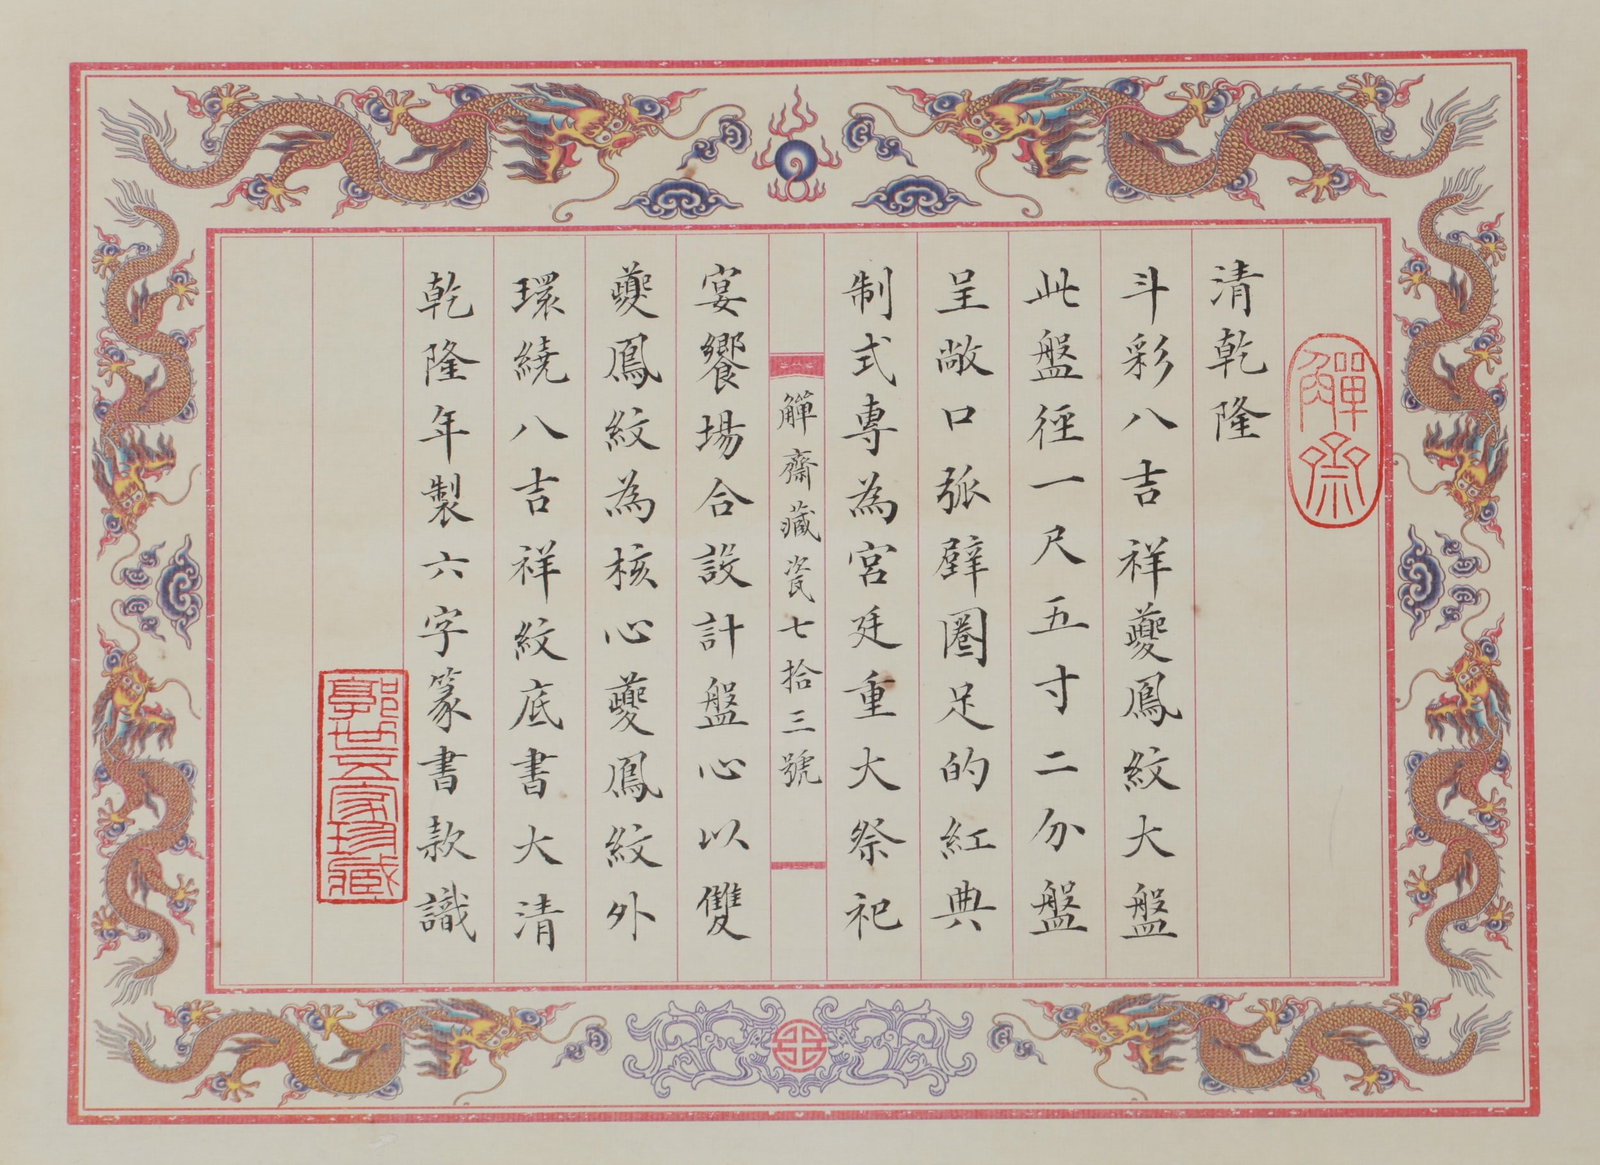 觶齋
清乾隆
斗彩八吉祥夔鳳紋大盤
此盤徑一尺五寸二分盤
呈敞口弧壁圈足的紅典
制式專為宮廷重大祭祀
觶齋藏瓷七拾三號
宴饗場合設計盤心以雙
夔鳳紋為核心夔鳳紋外
環繞八吉祥紋底書大清
乾隆年製六字篆書款識
郭世五家珍藏